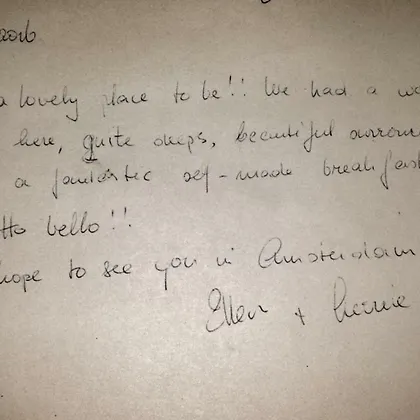 2016
a lovely place to be!! We had a wo
here, quite sleeps, beautiful surroun
a fantastic self-made breakfast
tto bello!!
hope to see you in Amsterdam
Ellen +